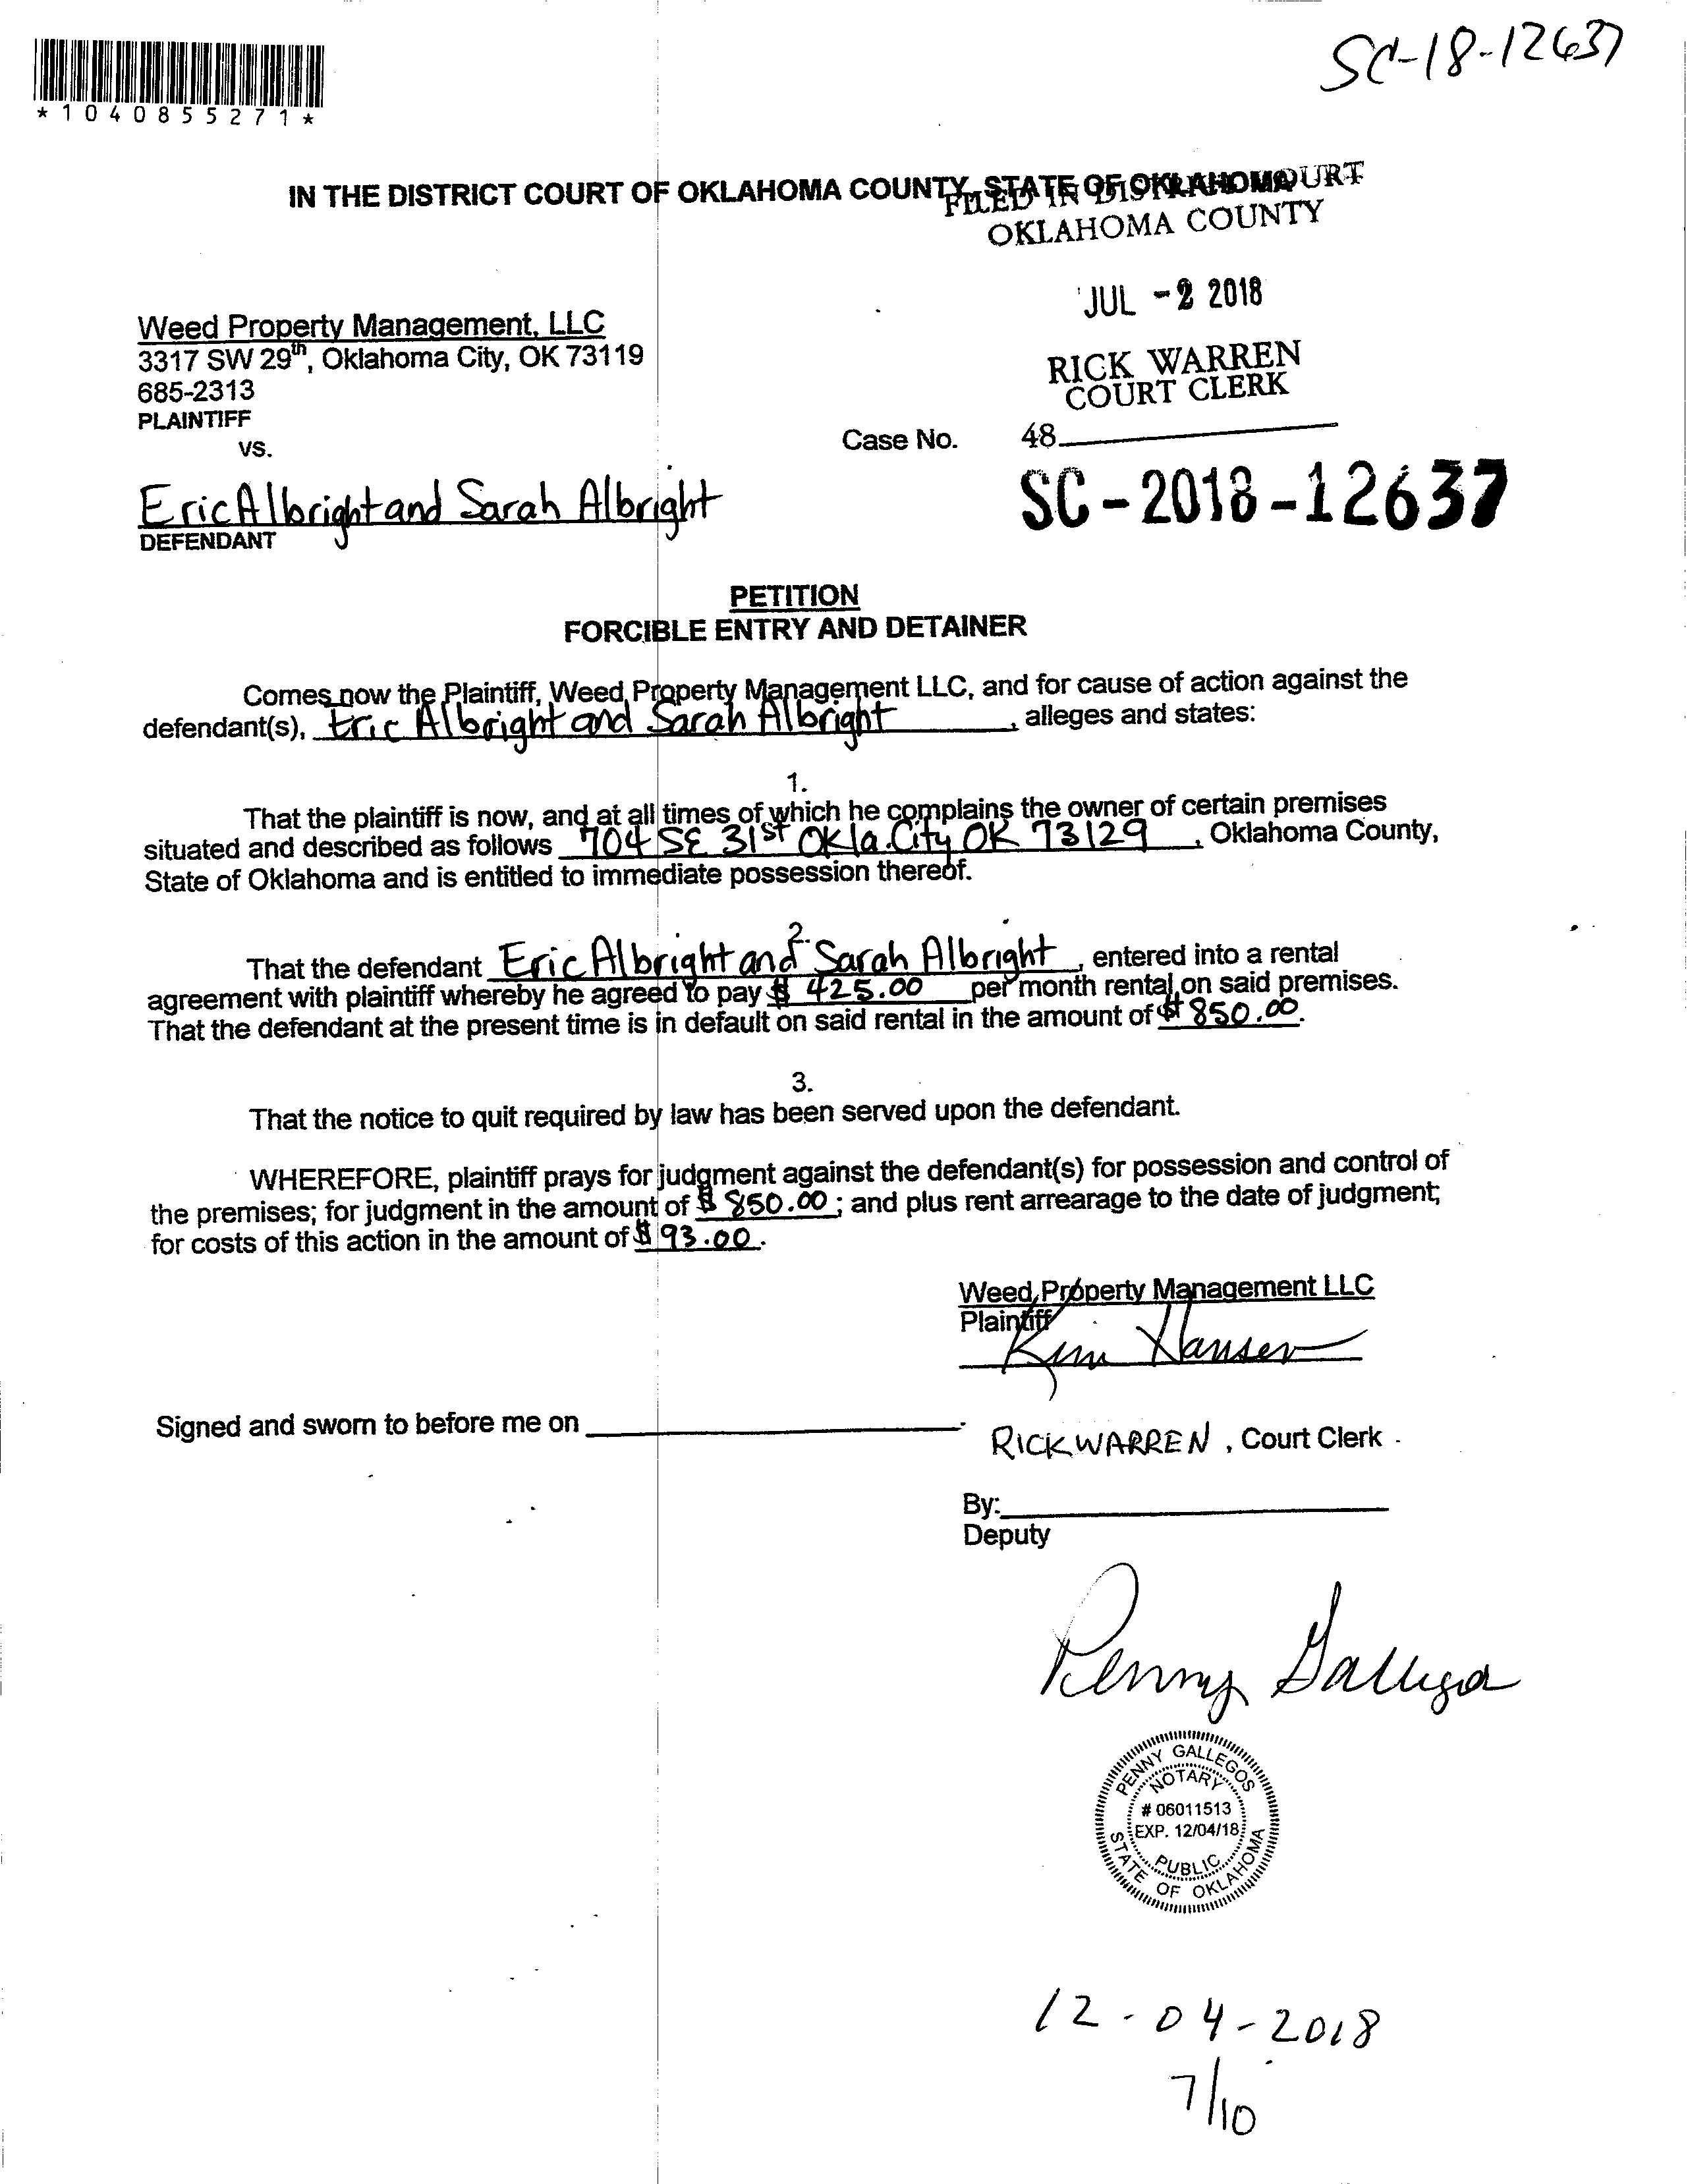 SC-18-12637
*1040855271*
IN THE DISTRICT COURT OF OKLAHOMA COUNTY, STATE OF OKLAHOMA
FILED IN DISTRICT COURT
OKLAHOMA COUNTY
JUL -2 2018
RICK WARREN
COURT CLERK
48
Weed Property Management, LLC
3317 SW 29th, Oklahoma City, OK 73119
685-2313
PLAINTIFF
vs.
Case No.
SC-2018-12637
Eric Albright and Sarah Albright
DEFENDANT
PETITION
FORCIBLE ENTRY AND DETAINER
Comes now the Plaintiff, Weed Property Management LLC, and for cause of action against the
defendant(s), Eric Albright and Sarah Albright, alleges and states:
1.
That the plaintiff is now, and at all times of which he complains the owner of certain premises
situated and described as follows 704 SE 31st Okla. City OK 73129, Oklahoma County,
State of Oklahoma and is entitled to immediate possession thereof.
2.
That the defendant Eric Albright and Sarah Albright, entered into a rental
agreement with plaintiff whereby he agreed to pay $ 425.00 per month rental on said premises.
That the defendant at the present time is in default on said rental in the amount of $ 850.00.
3.
That the notice to quit required by law has been served upon the defendant.
WHEREFORE, plaintiff prays for judgment against the defendant(s) for possession and control of
the premises; for judgment in the amount of $ 850.00; and plus rent arrearage to the date of judgment;
for costs of this action in the amount of $ 93.00.
Weed Property Management LLC
Plaintiff
Kim Hansen
Signed and sworn to before me on
RICK WARREN, Court Clerk
By:
Deputy
Penny Gallegos
PENNY GALLEGOS
NOTARY
# 06011513
EXP. 12/04/18
PUBLIC
STATE OF OKLAHOMA
12-04-2018
7/10